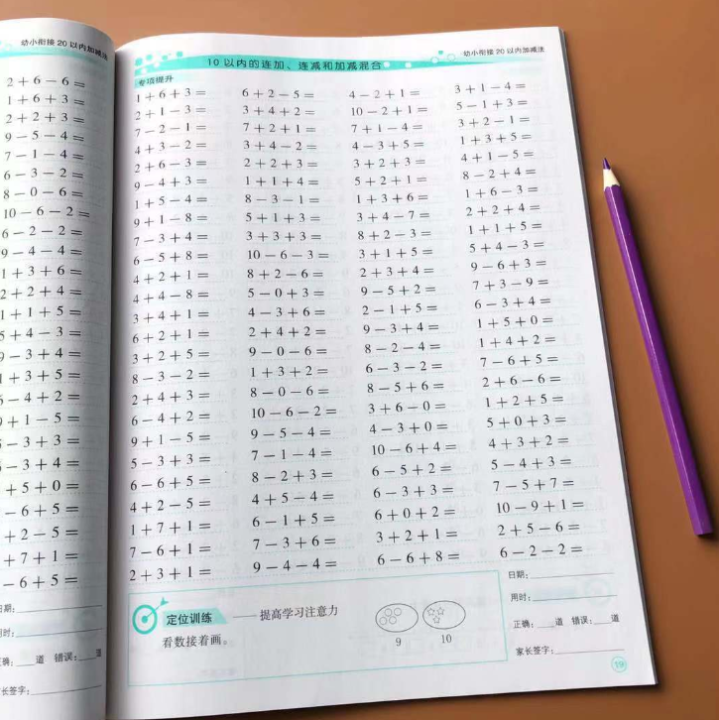 幼小衔接 20 以内加减法
2 + 6 − 6 =
1 + 6 + 3 =
2 + 2 + 3 =
9 − 5 − 4 =
7 − 1 − 4 =
6 − 3 − 2 =
8 − 0 − 6 =
10 − 6 − 2 =
6 − 2 − 2 =
9 − 4 − 4 =
1 + 3 + 6 =
2 + 2 + 4 =
1 + 1 + 5 =
5 + 4 − 3 =
9 − 3 + 4 =
1 + 3 + 5 =
− 4 + 2 =
+ 1 − 5 =
− 3 + 3 =
− 3 + 4 =
+ 5 + 0 =
− 6 + 5 =
+ 2 − 5 =
+ 7 + 1 =
− 6 + 5 =
日期：
用时：
正确：道 错误：道
家长签字：
幼小衔接 20 以内加减法
10 以内的连加、连减和加减混合
专项提升
1 + 6 + 3 = 6 + 2 − 5 = 4 − 2 + 1 = 3 + 1 − 4 =
2 + 1 − 3 = 3 + 4 + 2 = 10 − 2 + 1 = 5 − 1 + 3 =
7 − 2 − 1 = 7 + 2 + 1 = 7 + 1 − 4 = 3 + 2 − 1 =
4 + 3 − 2 = 3 + 4 − 2 = 4 − 3 + 5 = 1 + 3 + 5 =
2 + 6 − 3 = 2 + 2 + 3 = 3 + 2 + 3 = 4 + 1 − 5 =
9 − 4 + 3 = 1 + 1 + 4 = 5 + 2 + 1 = 8 − 2 + 4 =
1 + 5 − 4 = 8 − 3 − 1 = 1 + 3 + 6 = 1 + 6 − 3 =
9 + 1 − 8 = 5 + 1 + 3 = 3 + 4 − 7 = 2 + 2 + 4 =
7 − 3 + 4 = 3 + 3 + 3 = 8 + 2 − 3 = 1 + 1 + 5 =
6 − 5 + 8 = 10 − 6 − 3 = 3 + 1 + 5 = 5 + 4 − 3 =
4 + 2 + 1 = 8 + 2 − 6 = 2 + 3 + 4 = 9 − 6 + 3 =
4 + 4 − 8 = 5 − 0 + 3 = 9 − 5 + 2 = 7 + 3 − 9 =
3 + 4 + 1 = 4 − 3 + 6 = 2 − 1 + 5 = 6 − 3 + 4 =
6 + 2 + 1 = 2 + 4 + 2 = 9 − 3 + 4 = 1 + 5 + 0 =
3 + 2 + 5 = 9 − 0 − 6 = 8 − 2 − 4 = 1 + 4 + 2 =
8 − 3 − 2 = 1 + 3 + 2 = 6 − 3 − 2 = 7 − 6 + 5 =
2 + 4 + 3 = 8 − 0 − 6 = 8 − 5 + 6 = 2 + 6 − 6 =
6 − 4 + 2 = 10 − 6 − 2 = 3 + 6 − 0 = 1 + 2 + 5 =
9 + 1 − 5 = 9 − 5 − 4 = 4 − 3 + 0 = 5 + 0 + 3 =
5 − 3 + 3 = 7 − 1 − 4 = 10 − 6 + 4 = 4 + 3 + 2 =
6 − 6 + 5 = 8 − 2 + 3 = 6 − 5 + 2 = 5 − 4 + 3 =
4 + 2 − 5 = 4 + 5 − 4 = 6 − 3 + 3 = 7 − 5 + 7 =
1 + 7 + 1 = 6 − 1 + 5 = 6 + 0 + 2 = 10 − 9 + 1 =
7 − 6 + 1 = 7 − 3 + 6 = 3 + 2 + 1 = 2 + 5 − 6 =
2 + 3 + 1 = 9 − 4 − 4 = 6 − 6 + 8 = 6 − 2 − 2 =
定位训练 ——提高学习注意力
看数接着画。
9 10
日期：
用时：
正确：道 错误：道
家长签字：
19